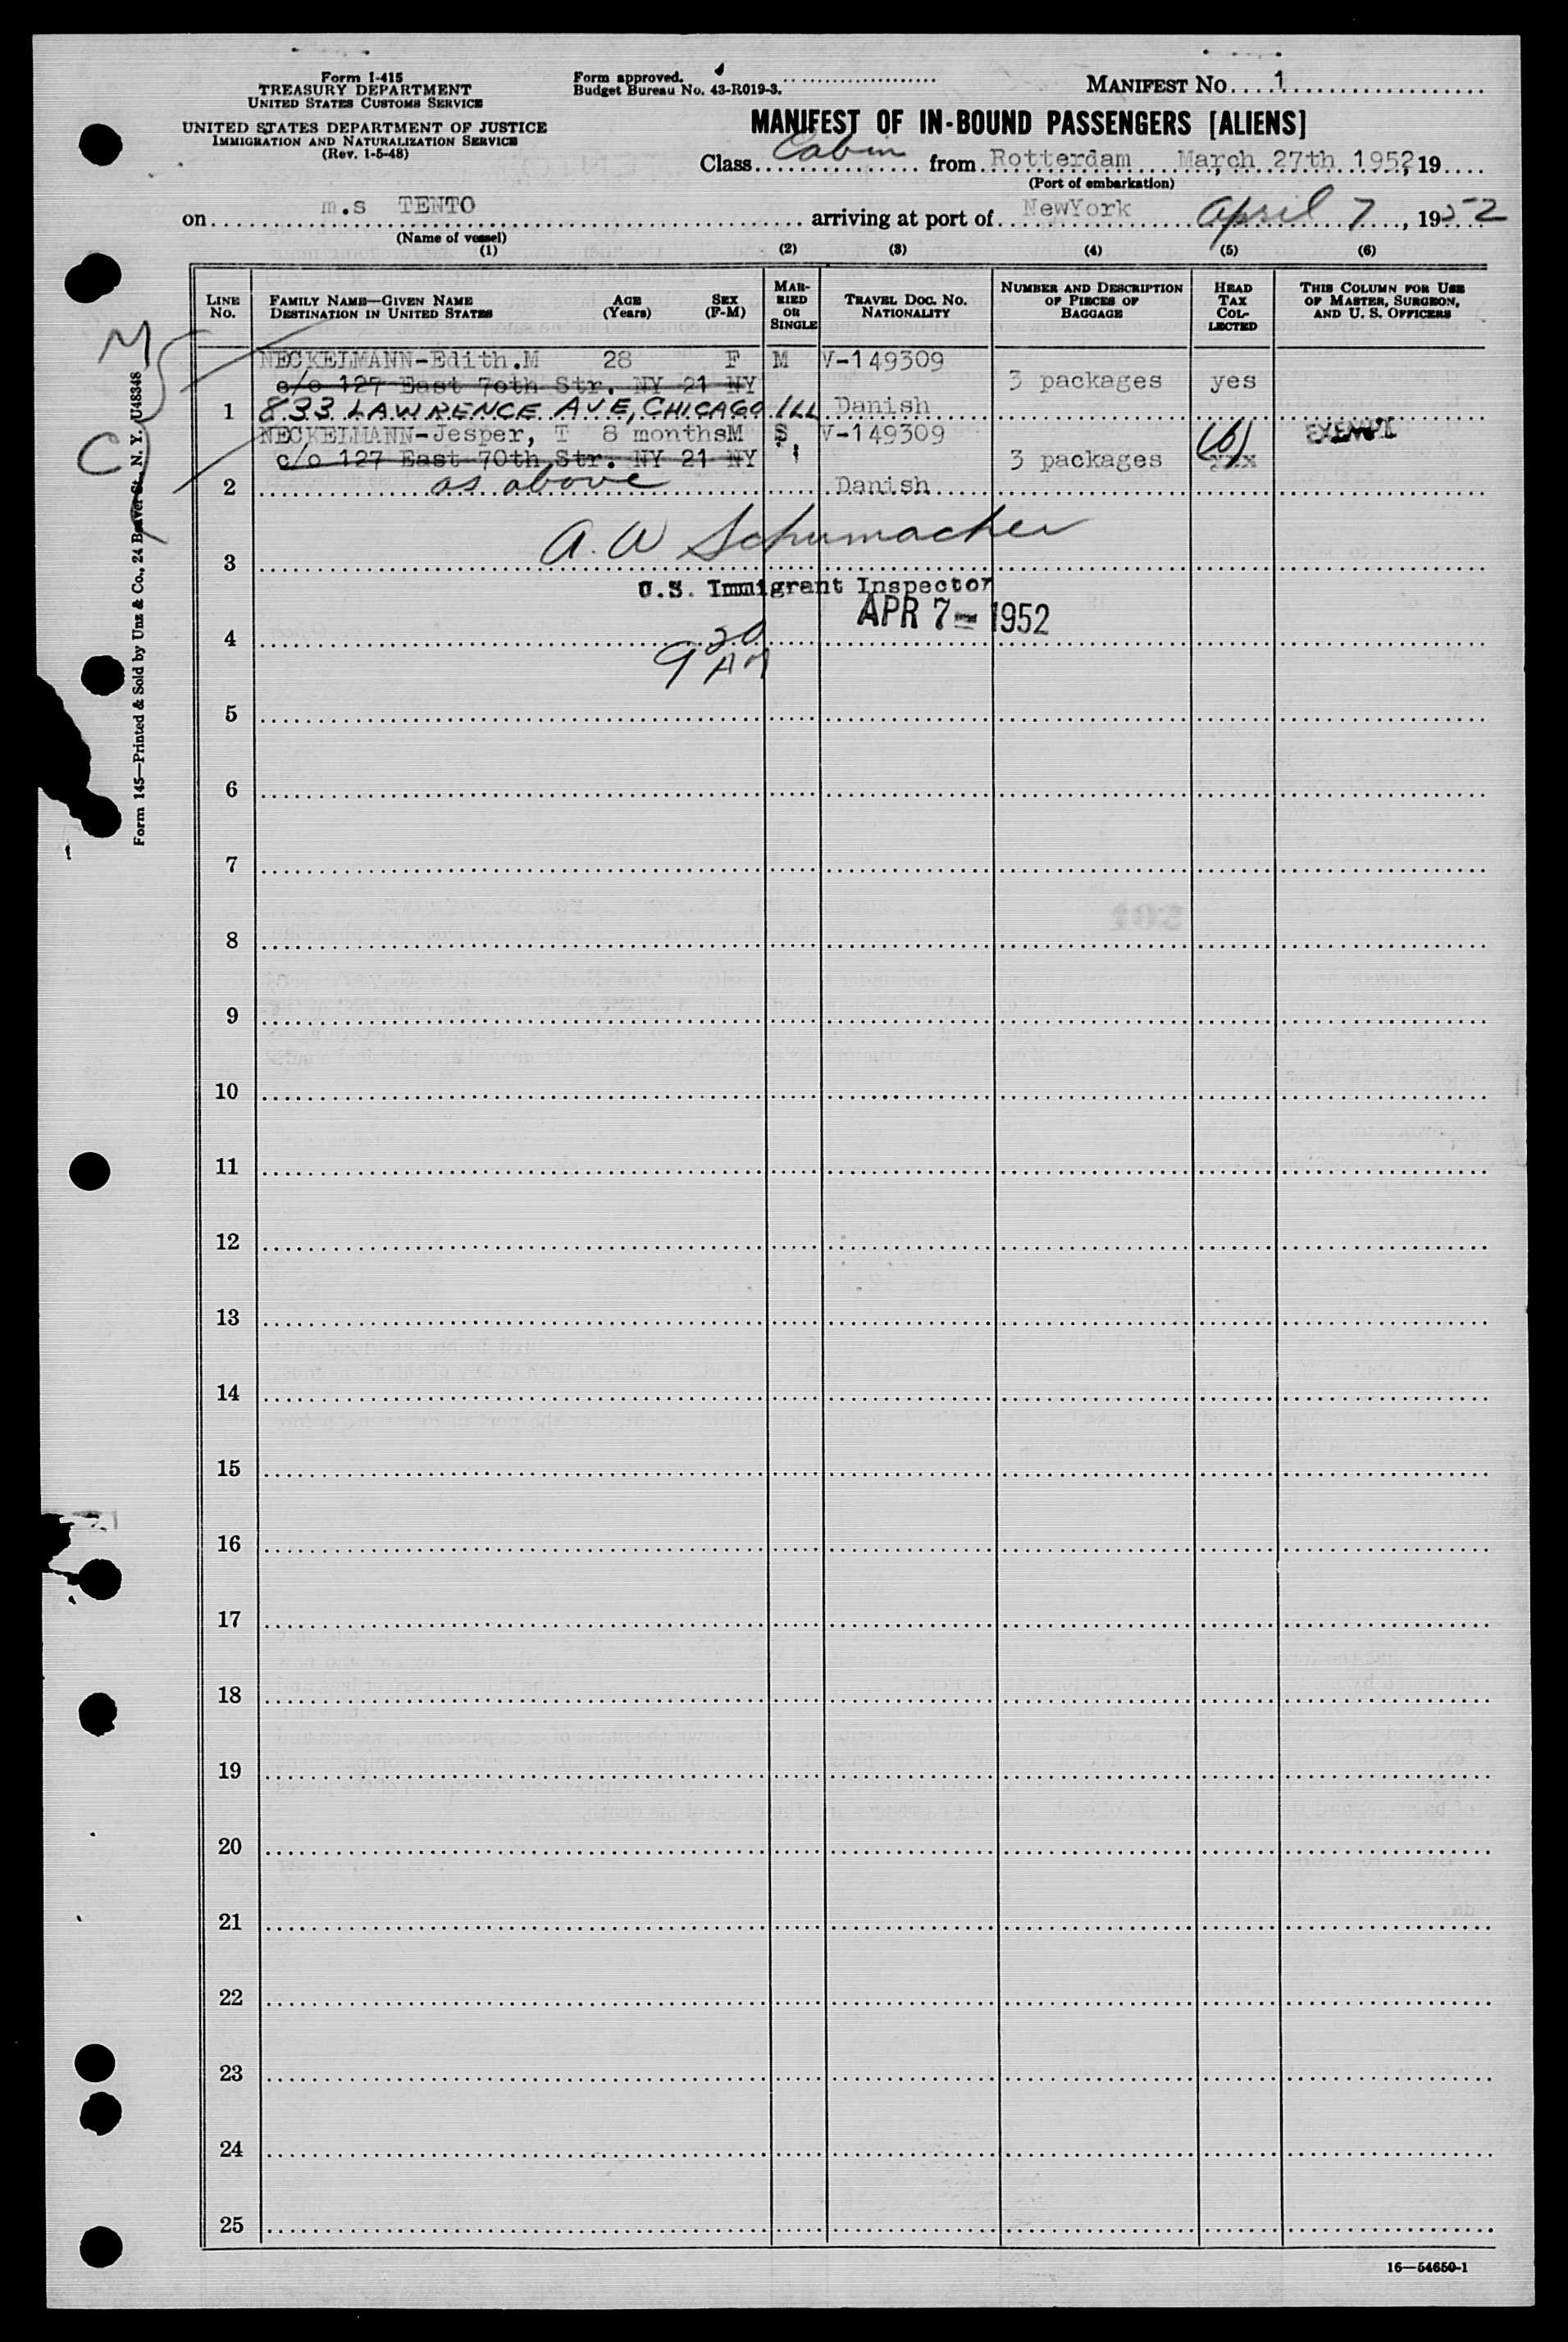 Form I-415
TREASURY DEPARTMENT
UNITED STATES CUSTOMS SERVICE
UNITED STATES DEPARTMENT OF JUSTICE
IMMIGRATION AND NATURALIZATION SERVICE
(Rev. 1-5-48)
Form approved.
Budget Bureau No. 43-R019-3.
MANIFEST NO. 1
MANIFEST OF IN-BOUND PASSENGERS [ALIENS]
Class Cabin from Rotterdam March 27th 1952, 19
(Port of embarkation)
on m.s TENTO arriving at port of NewYork April 7, 1952
(Name of vessel)
(1) (2) (3) (4) (5) (6)
LINE NO.
FAMILY NAME—GIVEN NAME
DESTINATION IN UNITED STATES
AGE (Years)
SEX (F-M)
MARRIED OR SINGLE
TRAVEL DOC. NO.
NATIONALITY
NUMBER AND DESCRIPTION OF PIECES OF BAGGAGE
HEAD TAX COLLECTED
THIS COLUMN FOR USE OF MASTER, SURGEON, AND U. S. OFFICERS
NECKELMANN-Edith.M 28 F M V-149309
c/o 127 East 70th Str. NY 21 NY 3 packages yes
1 833 LAWRENCE AVE, CHICAGO ILL Danish
NECKELMANN-Jesper, T 8 months M S V-149309 EXEMPT
c/o 127 East 70th Str. NY 21 NY 3 packages (6)
2 as above Danish
A. W Schumacher
3
U.S. Immigrant Inspector
APR 7 - 1952
4
9 20 AM
5
6
7
8
9
10
11
12
13
14
15
16
17
18
19
20
21
22
23
24
25
16—54650-1
M
C
Form 145—Printed & Sold by Unz & Co., 24 Beaver St., N. Y. U48348